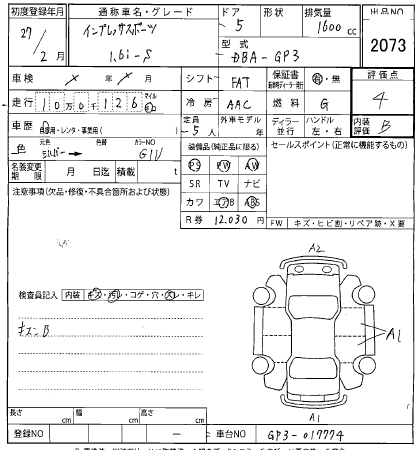 初度登録年月 通称車名・グレード ドア 形状 排気量 出品NO
27 / 2月 インプレッサスポーツ 5 1600cc 2073
1.6i-S 型式 DBA-GP3
車検 × 月 × シフト FAT 保証書 有・無 評価点
走行 10万0千126 マイル km 冷房 AAC 燃料 G 4
車歴 自家用・レンタ・事業用( ) 定員 5人 外車モデル 年 ディーラー 並行 ハンドル 左・右 内装評価 B
色 元色 シルバー 色替 カラーNO G1U 装備品(純正品に限る) セールスポイント(正常に機能するもの)
名義変更期限 月 日迄 積載 t PS PW AW
注意事項(欠品・修復・不具合箇所および状態) SR TV ナビ
カワ エアB ABS
R券 12,030円 FW キズ・ヒビ割・リペア跡・X要
A2
検査員記入 内装 キズ・汚レ・コゲ・穴・スレ・キレ
キズンB
A1
A1
長さ cm 幅 cm 高さ cm
登録NO － 車台NO GP3-017774